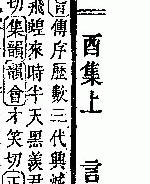 酉集上 言
傳序歷數三代興
飛蝗來時半天黑羨君
切集韻韻會才笑切正